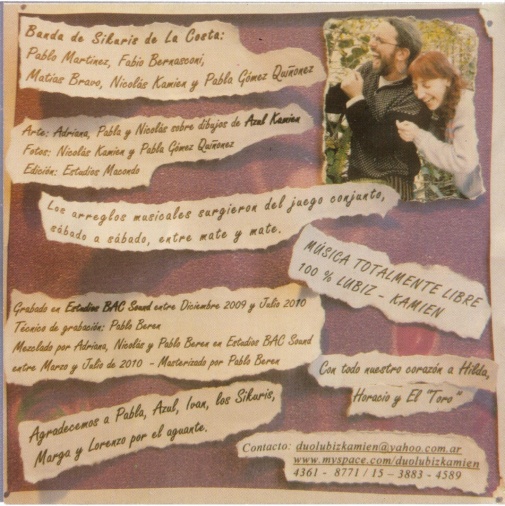 Banda de Sikuris de La Costa:
Pablo Martinez, Fabio Bernasconi,
Matías Bravo, Nicolás Kamien y Pabla Gómez Quiñonez
Arte: Adriana, Pabla y Nicolás sobre dibujos de Azul Kamien
Fotos: Nicolás Kamien y Pabla Gómez Quiñonez
Edición: Estudios Macondo
Los arreglos musicales surgieron del juego conjunto,
sábado a sábado, entre mate y mate.
MÚSICA TOTALMENTE LIBRE
100 % LUBIZ - KAMIEN
Grabado en Estudios BAC Sound entre Diciembre 2009 y Julio 2010
Técnico de grabación: Pablo Beren
Mezclado por Adriana, Nicolás y Pablo Beren en Estudios BAC Sound
entre Marzo y Julio de 2010 - Masterizado por Pablo Beren
Con todo nuestro corazón a Hilda,
Horacio y El "Toro"
Agradecemos a Pabla, Azul, Ivan, los Sikuris,
Marga y Lorenzo por el aguante.
Contacto: duolubizkamien@yahoo.com.ar
www.myspace.com/duolubizkamien
4361 - 8771 / 15 - 3883 - 4589